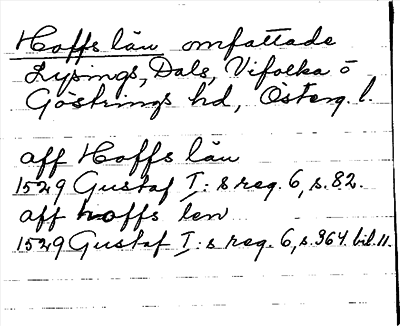 Hoffs län omfattade
Lysings, Dals, Vifolka o
Göstrings hd, Österg. l.
aff Hoffs län
1529 Gustaf I:s reg. 6, s. 82.
aff hoffs len
1529 Gustaf I:s reg. 6, s. 364. bil. 11.